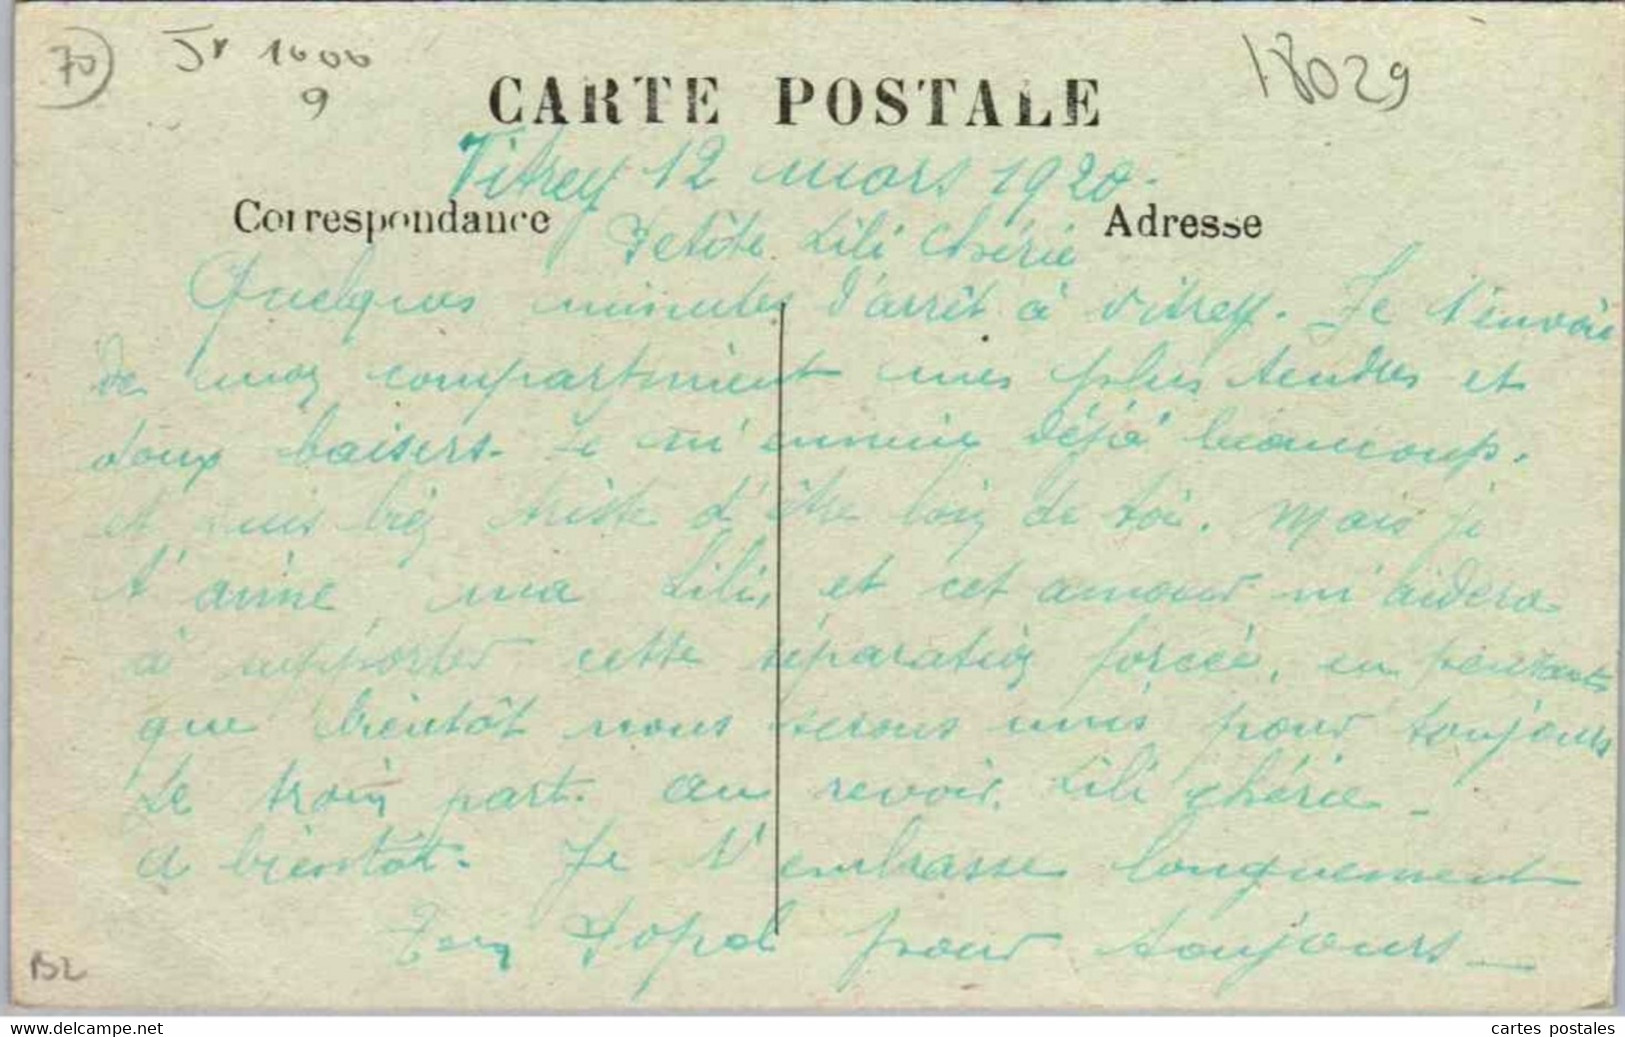 70
1000
9
18029
CARTE POSTALE
Vitrey 12 mars 1920.
Correspondance
Adresse
Petite Lili Chérie
Quelques minutes d'arrêt à Vitrey. Je t'envoie
de mon compartiment mes plus tendres et
doux baisers. Je m'ennuie déjà beaucoup.
et suis bien triste d'être loin de toi. Mais je
t'aime ma Lili, et cet amour m'aidera
à supporter cette séparation forcée, en pensant
que bientôt nous serons unis pour toujours
Le train part. au revoir. Lili chérie -
a bientôt. Je t'embrasse longuement
Ton pour toujours
B2
www.delcampe.net
cartes postales